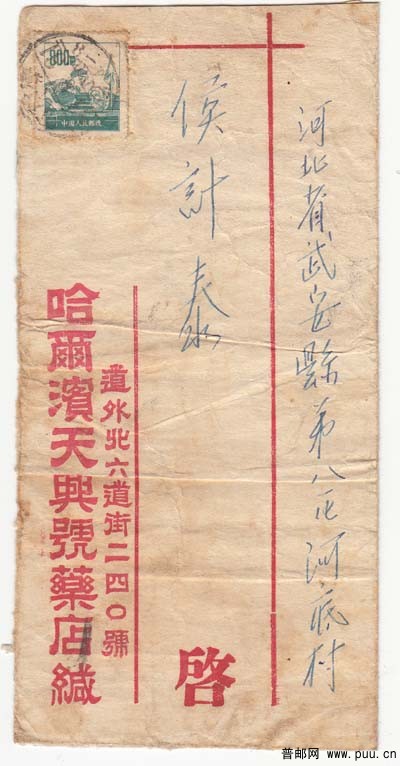 河北省武安縣第八区河底村
侯計泰
啓
道外北六道街二四〇號
哈爾濱天興號藥店緘
800
中国人民邮政
普邮网 www.puu.cn